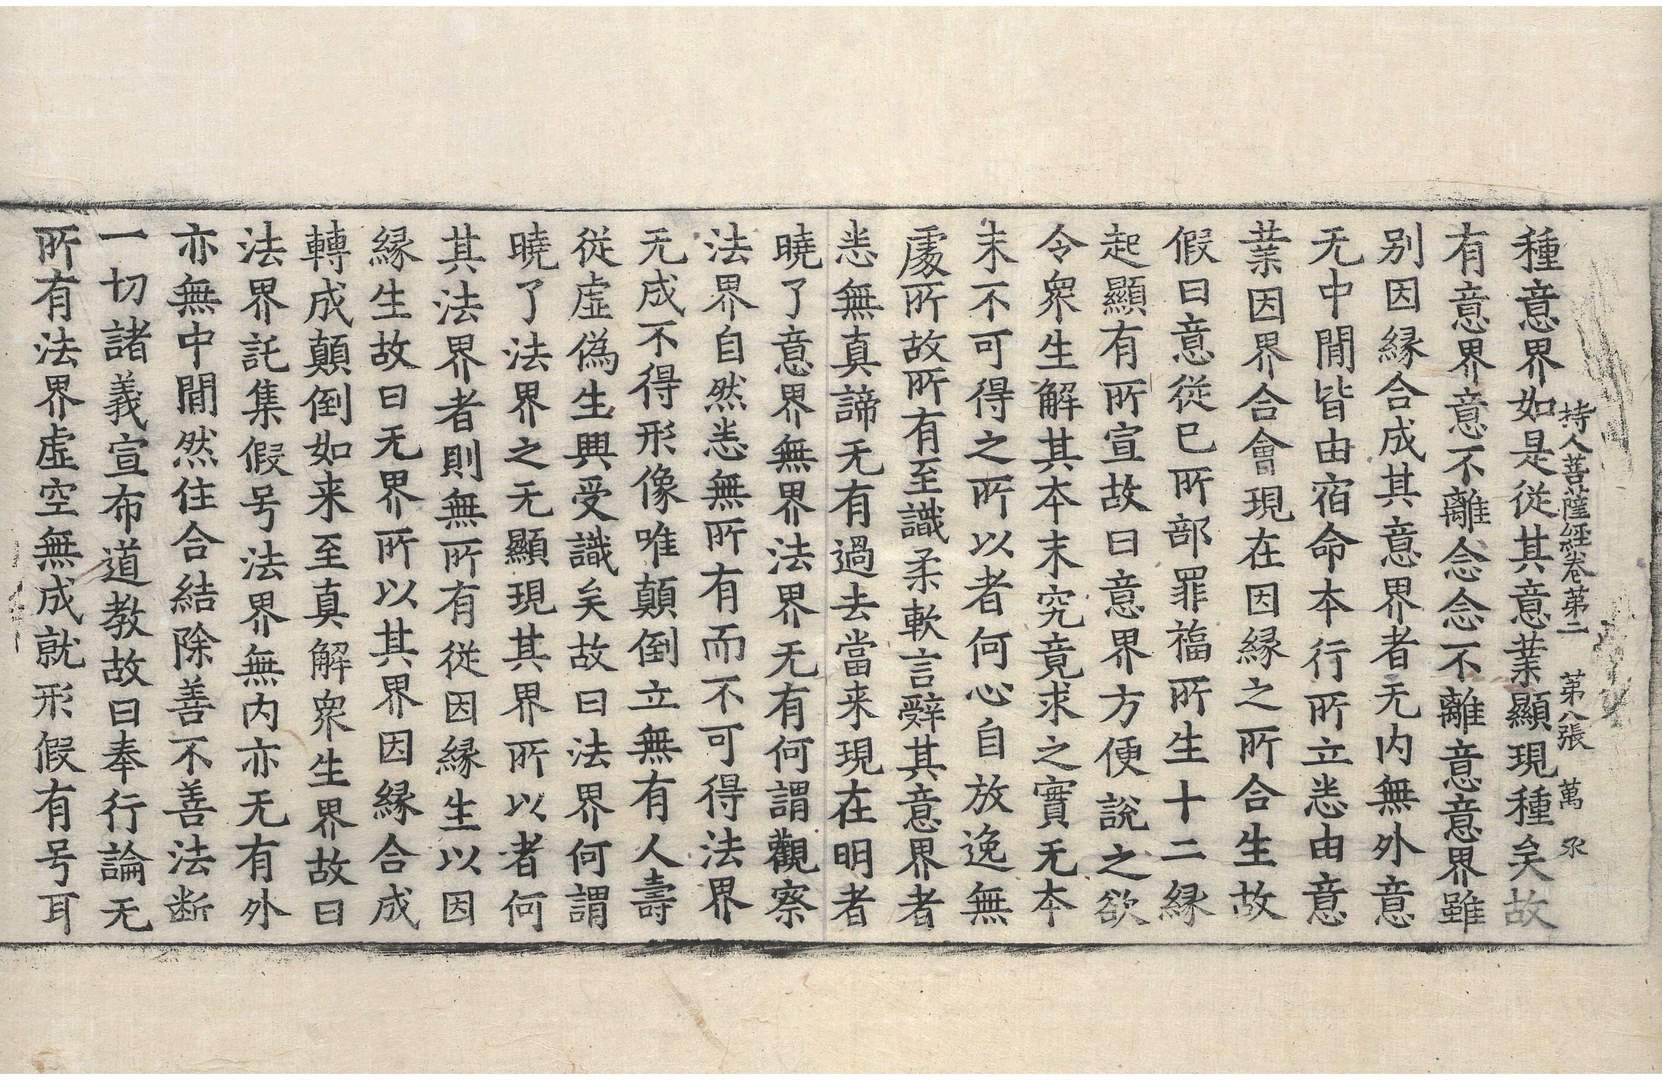 持人菩薩經卷第二　第八張　萬
種意界如是従其意業顯現種矣故
有意界意不離念念不離意意界雖
别因緣合成其意界者无内無外意
无中閒皆由宿命本行所立悉由意
業因界合會現在因緣之所合生故
假曰意従已所部罪福所生十二緣
起顯有所宣故曰意界方便說之欲
令衆生解其本末究竟求之實无本
末不可得之所以者何心自放逸無
處所故所有至識柔軟言辭其意界者
悉無真諦无有過去當来現在明者
曉了意界無界法界无有何謂觀察
法界自然悉無所有而不可得法界
无成不得形像唯顛倒立無有人壽
従虛偽生興受識矣故曰法界何謂
曉了法界之无顯現其界所以者何
其法界者則無所有従因緣生以因
緣生故曰无界所以其界因緣合成
轉成顛倒如来至真解衆生界故曰
法界託集假号法界無内亦无有外
亦無中間然住合結除善不善法断
一切諸義宣布道教故曰奉行論无
所有法界虛空無成就形假有号耳